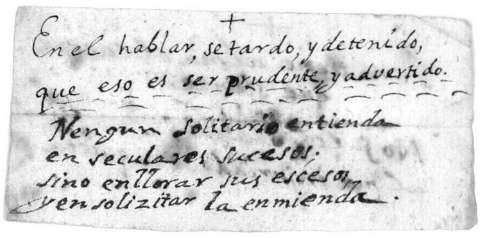 En el hablar, se tardo, y detenido,
que eso es ser prudente, y advertido.
Nengun solitario entienda
en seculares sucesos.
sino en llorar sus escesos,
y en solizitar la enmienda.